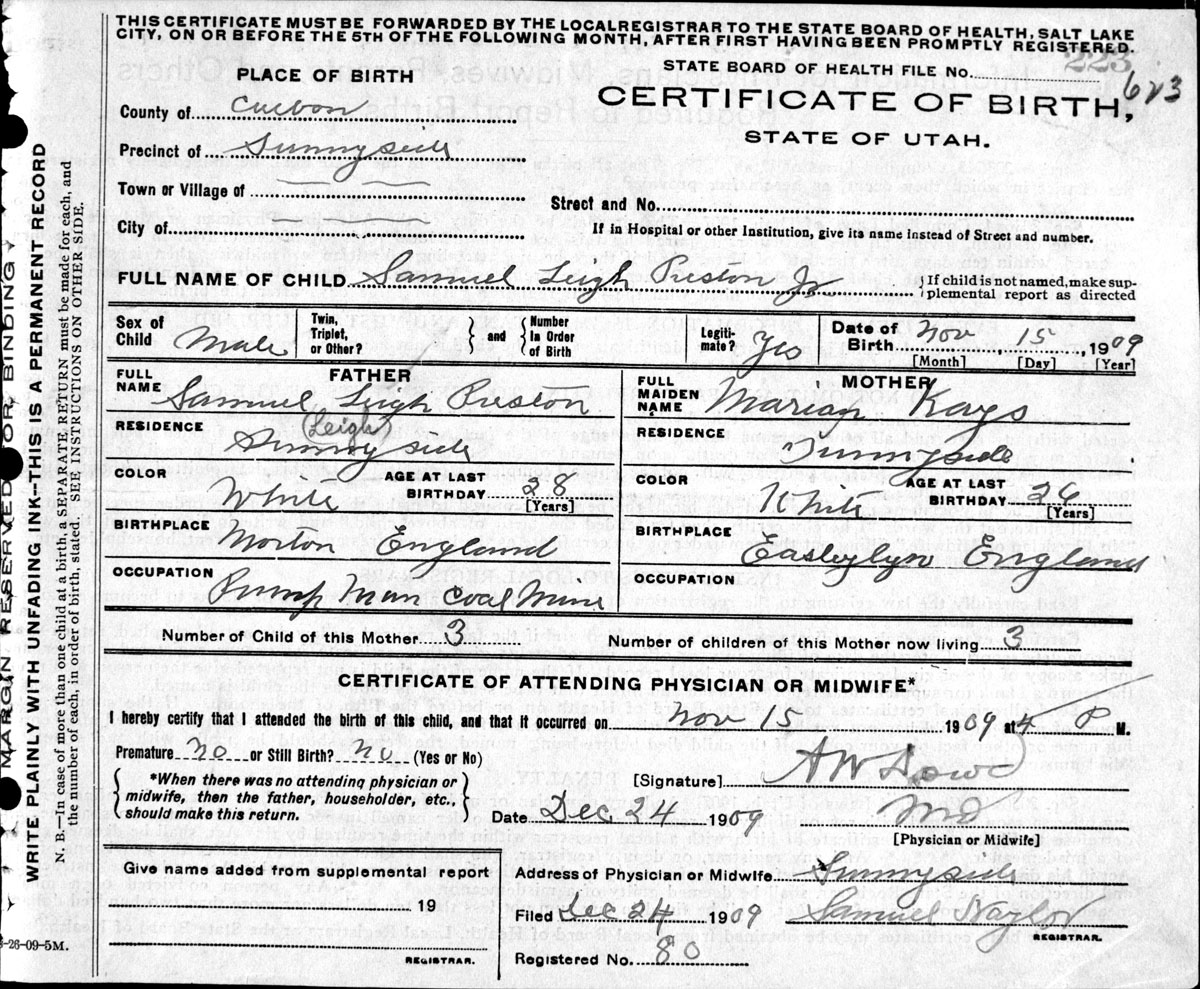 THIS CERTIFICATE MUST BE FORWARDED BY THE LOCAL REGISTRAR TO THE STATE BOARD OF HEALTH, SALT LAKE
CITY, ON OR BEFORE THE 5TH OF THE FOLLOWING MONTH, AFTER FIRST HAVING BEEN PROMPTLY REGISTERED.
223
STATE BOARD OF HEALTH FILE No.
623
PLACE OF BIRTH
CERTIFICATE OF BIRTH,
STATE OF UTAH.
County of Carbon
Precinct of Sunnyside
Town or Village of
Street and No.
City of
If in Hospital or other Institution, give its name instead of Street and number.
FULL NAME OF CHILD Samuel Leigh Preston Jr
If child is not named, make sup-
plemental report as directed
Sex of Child Male
Twin, Triplet, or Other? and Number In Order of Birth
Legiti-mate? Yes
Date of Birth Nov, 15, 1909
[Month] [Day] [Year]
FATHER
FULL NAME Samuel Leigh Preston
(Leigh)
RESIDENCE Sunnyside
COLOR White
AGE AT LAST BIRTHDAY 28
[Years]
BIRTHPLACE Morton England
OCCUPATION Pump Man Coal Mine
MOTHER
FULL MAIDEN NAME Marian Kays
RESIDENCE Sunnyside
COLOR White
AGE AT LAST BIRTHDAY 26
[Years]
BIRTHPLACE Easleylyn England
OCCUPATION
Number of Child of this Mother 3
Number of children of this Mother now living 3
CERTIFICATE OF ATTENDING PHYSICIAN OR MIDWIFE*
I hereby certify that I attended the birth of this child, and that it occurred on Nov 15 1909 at 4 P M.
Premature? no or Still Birth? no (Yes or No)
*When there was no attending physician or
midwife, then the father, householder, etc.,
should make this return.
[Signature] A W Dowd
MD
[Physician or Midwife]
Date Dec 24 1909
Give name added from supplemental report
19
REGISTRAR.
Address of Physician or Midwife Sunnyside
Filed Dec 24 1909 Samuel Naylor
REGISTRAR.
Registered No. 80
MARGIN RESERVED FOR BINDING
WRITE PLAINLY WITH UNFADING INK—THIS IS A PERMANENT RECORD
N. B.—In case of more than one child at a birth, a SEPARATE RETURN must be made for each, and
the number of each, in order of birth, stated. SEE INSTRUCTIONS ON OTHER SIDE.
-26-09-5M.